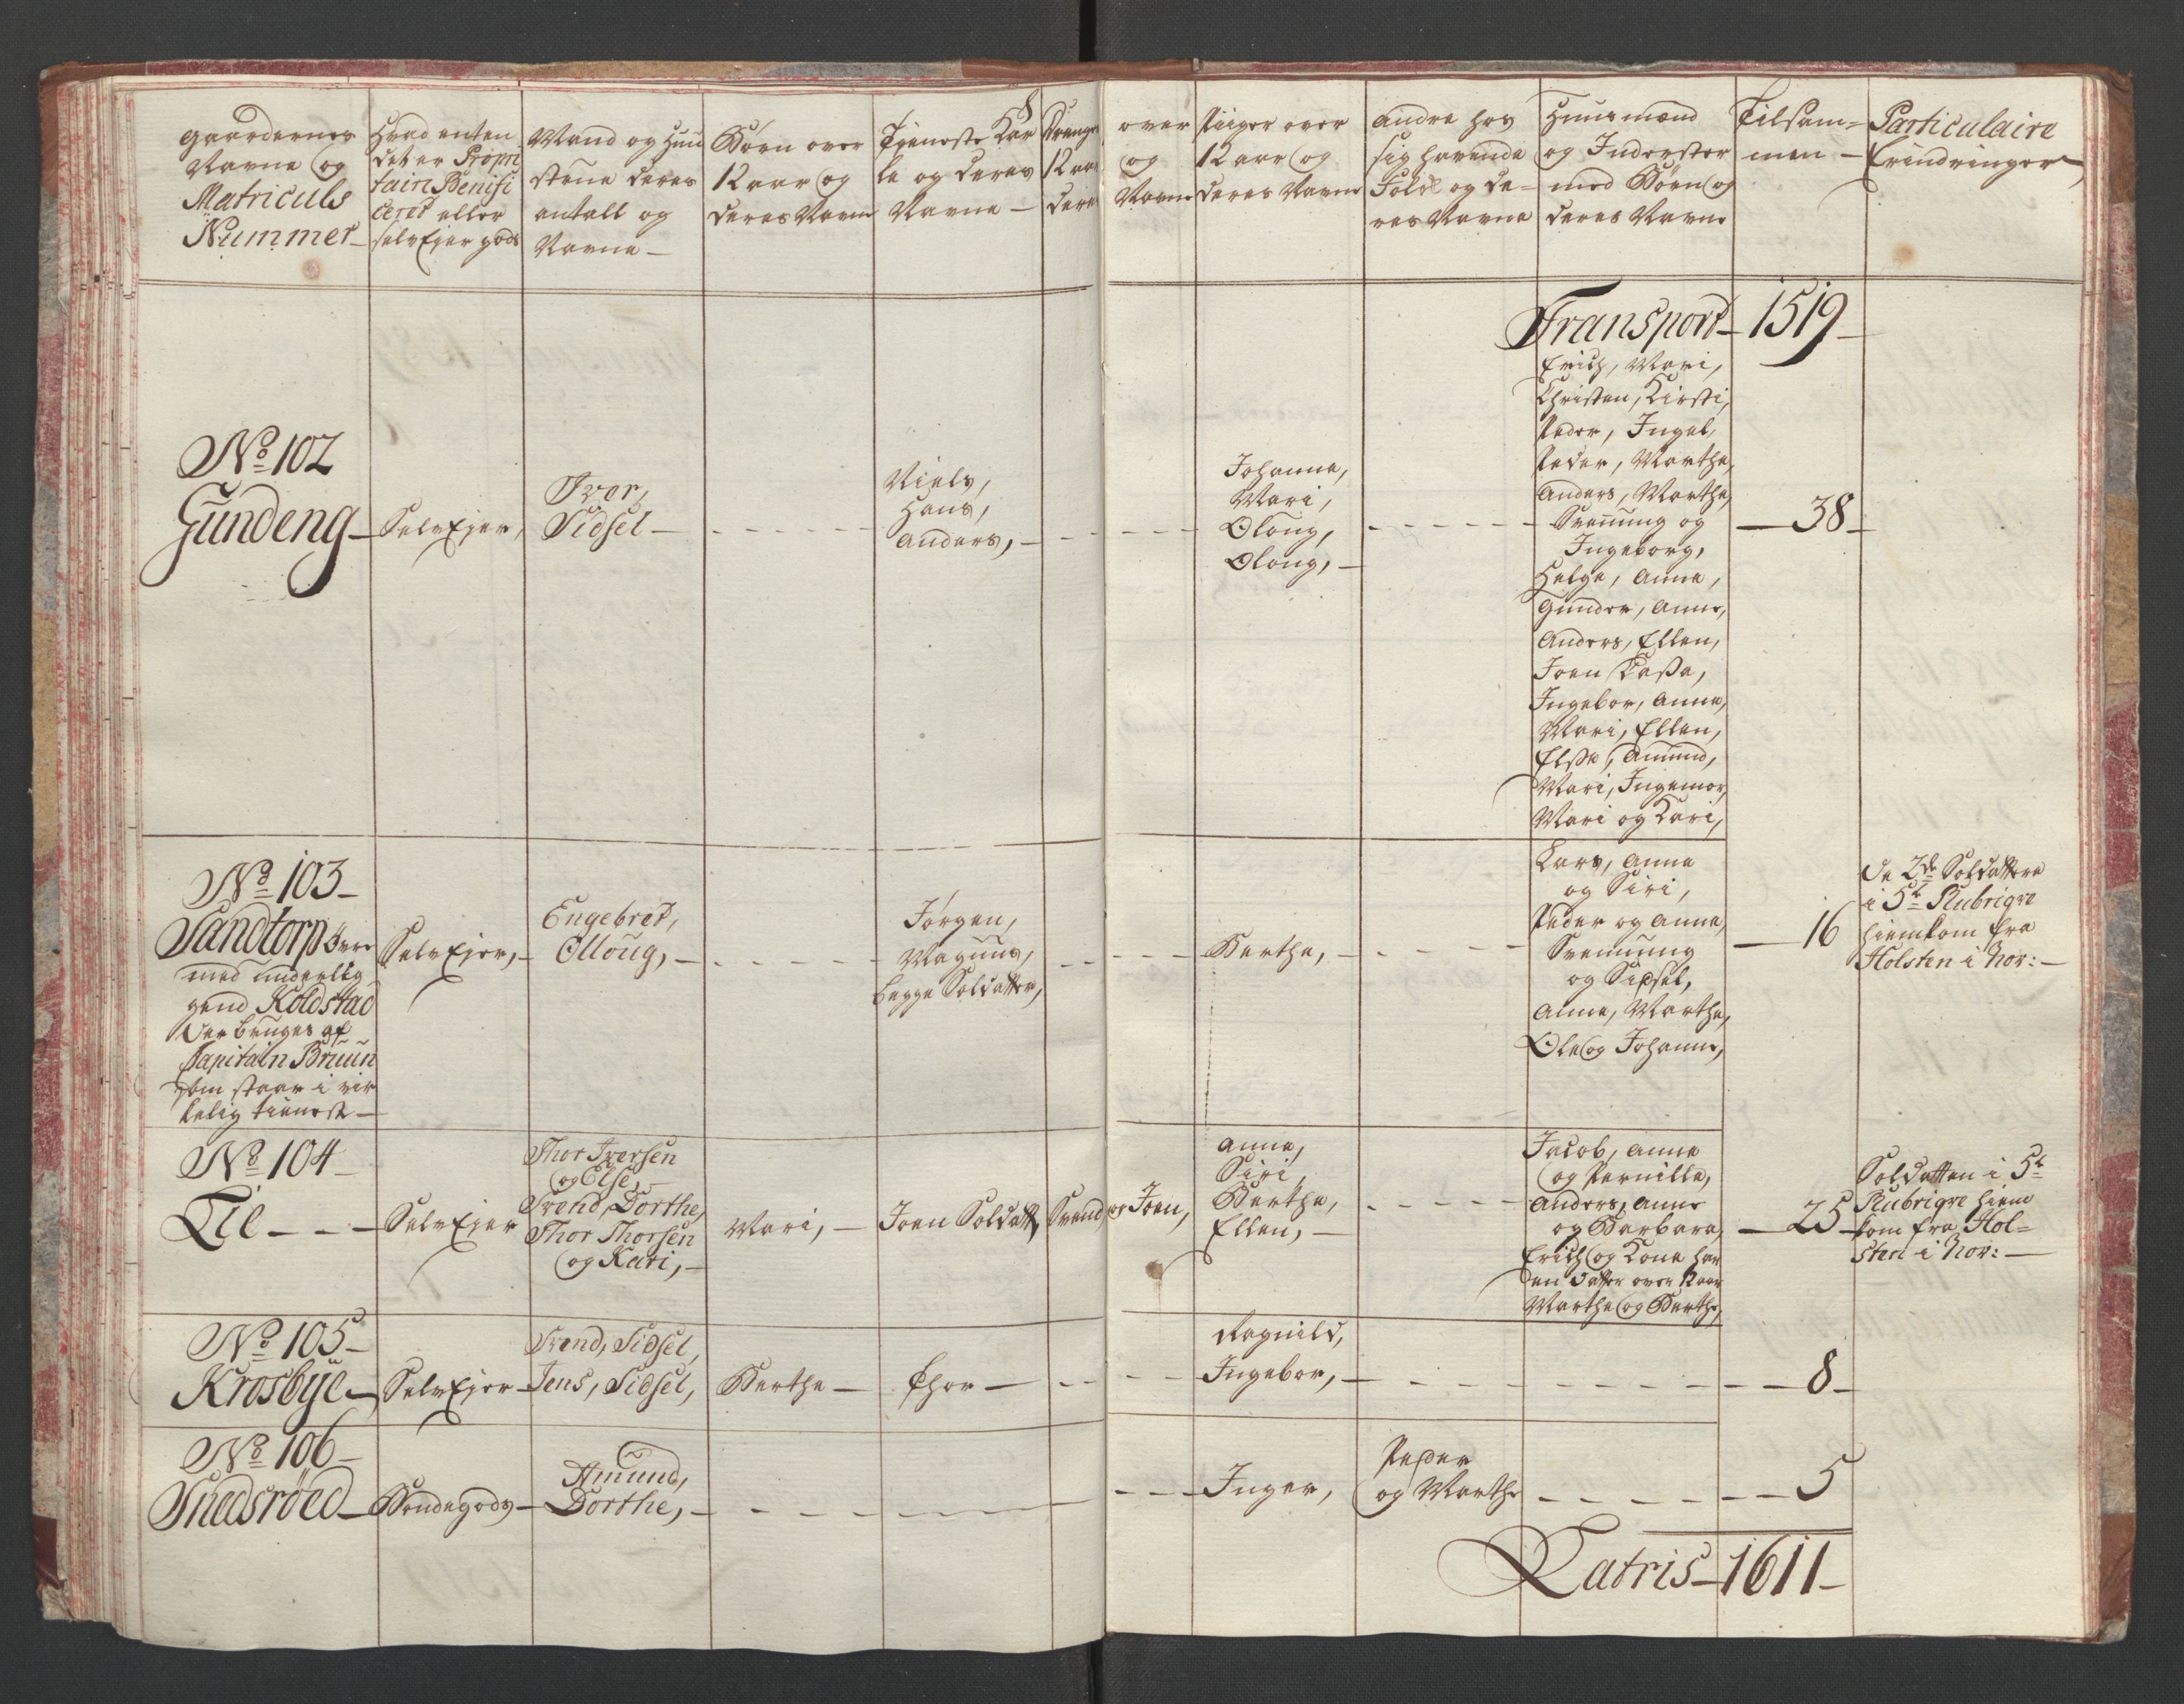 Gaardernes
Navne og
Matriculs
Nummer
Hvad enten
det er Propri
tairt Benifi
ceret eller
selvEjer gods
Mand og Huu
strue deres
antall og
Navne
Børn over
12 aar og
deres Navne
Tjeneste Kar
le og deres
Navne
Drenge
12 aar
deres
over
og
Navne
Piiger over
12 aar og
deres Navne
Andre hos
sig havende
Folk og de-
res Navne
Huusmænd
og Inderster
med Børn og
deres Navne
Tilsam-
men
Particulaire
Erindringer
Transport 1519
No 102
Gundeng
SelvEjer,
Iver,
Sidsel
Niels,
Hans,
Anders,
Johanna,
Mari,
Oloug,
Oloug,
Erich, Mari,
Christen, Kirsti,
Peder, Ingeb,
Peder, Marthe,
Anders, Marthe,
Svennung og
Ingeborg,
Helge, Anne,
Gunder, Anne,
Anders, Ellen,
Joen
Ingebor, Anne,
Mari, Ellen,
Else, Amund,
Mari, Ingemor,
Mari og Kari,
38
No 103
Sandtorp
med underlig
gend Koldstad
Der bruges af
Capitain Bruun
som staar i vir
kelig tieneste
SelvEjer,
Engebret,
Olloug,
Jørgen,
Magnus,
begge Soldatter,
Berthe,
Lars, Anna
og Siri,
Peder og Anne,
Svennung
og Sidsel,
Anne, Marthe,
Ole og Johanne,
16
De 2de Soldattere
i 5te Rubrigve
hiemkom fra
Holsten i Nov:
No 104
Lie
SelvEjer
Thor Iversen
og Else,
Svend, Dorthe,
Thor Thorsen
og Kari,
Mari,
Joen Soldatt,
Svend og Joen,
Anne,
Siri,
Berthe,
Ellen,
Jacob, Anne
og Pernille,
Anders, Anne
og Barbara,
Erich og Tone har
en Datter over 12 aar
Marthe og Berthe,
25
Soldatten i 5te
Rubrigve hiem
kom fra Hol-
sten i Nov:
No 105
Krosbye
SelvEjer
Svend, Sidsel,
Jens, Sidsel,
Berthe
Thor
Ragnild,
Ingebor,
8
No 106
Snedsröed
Bondegods
Amund,
Dorthe,
Inger,
Peder
og Marthe
5
Latris 1611